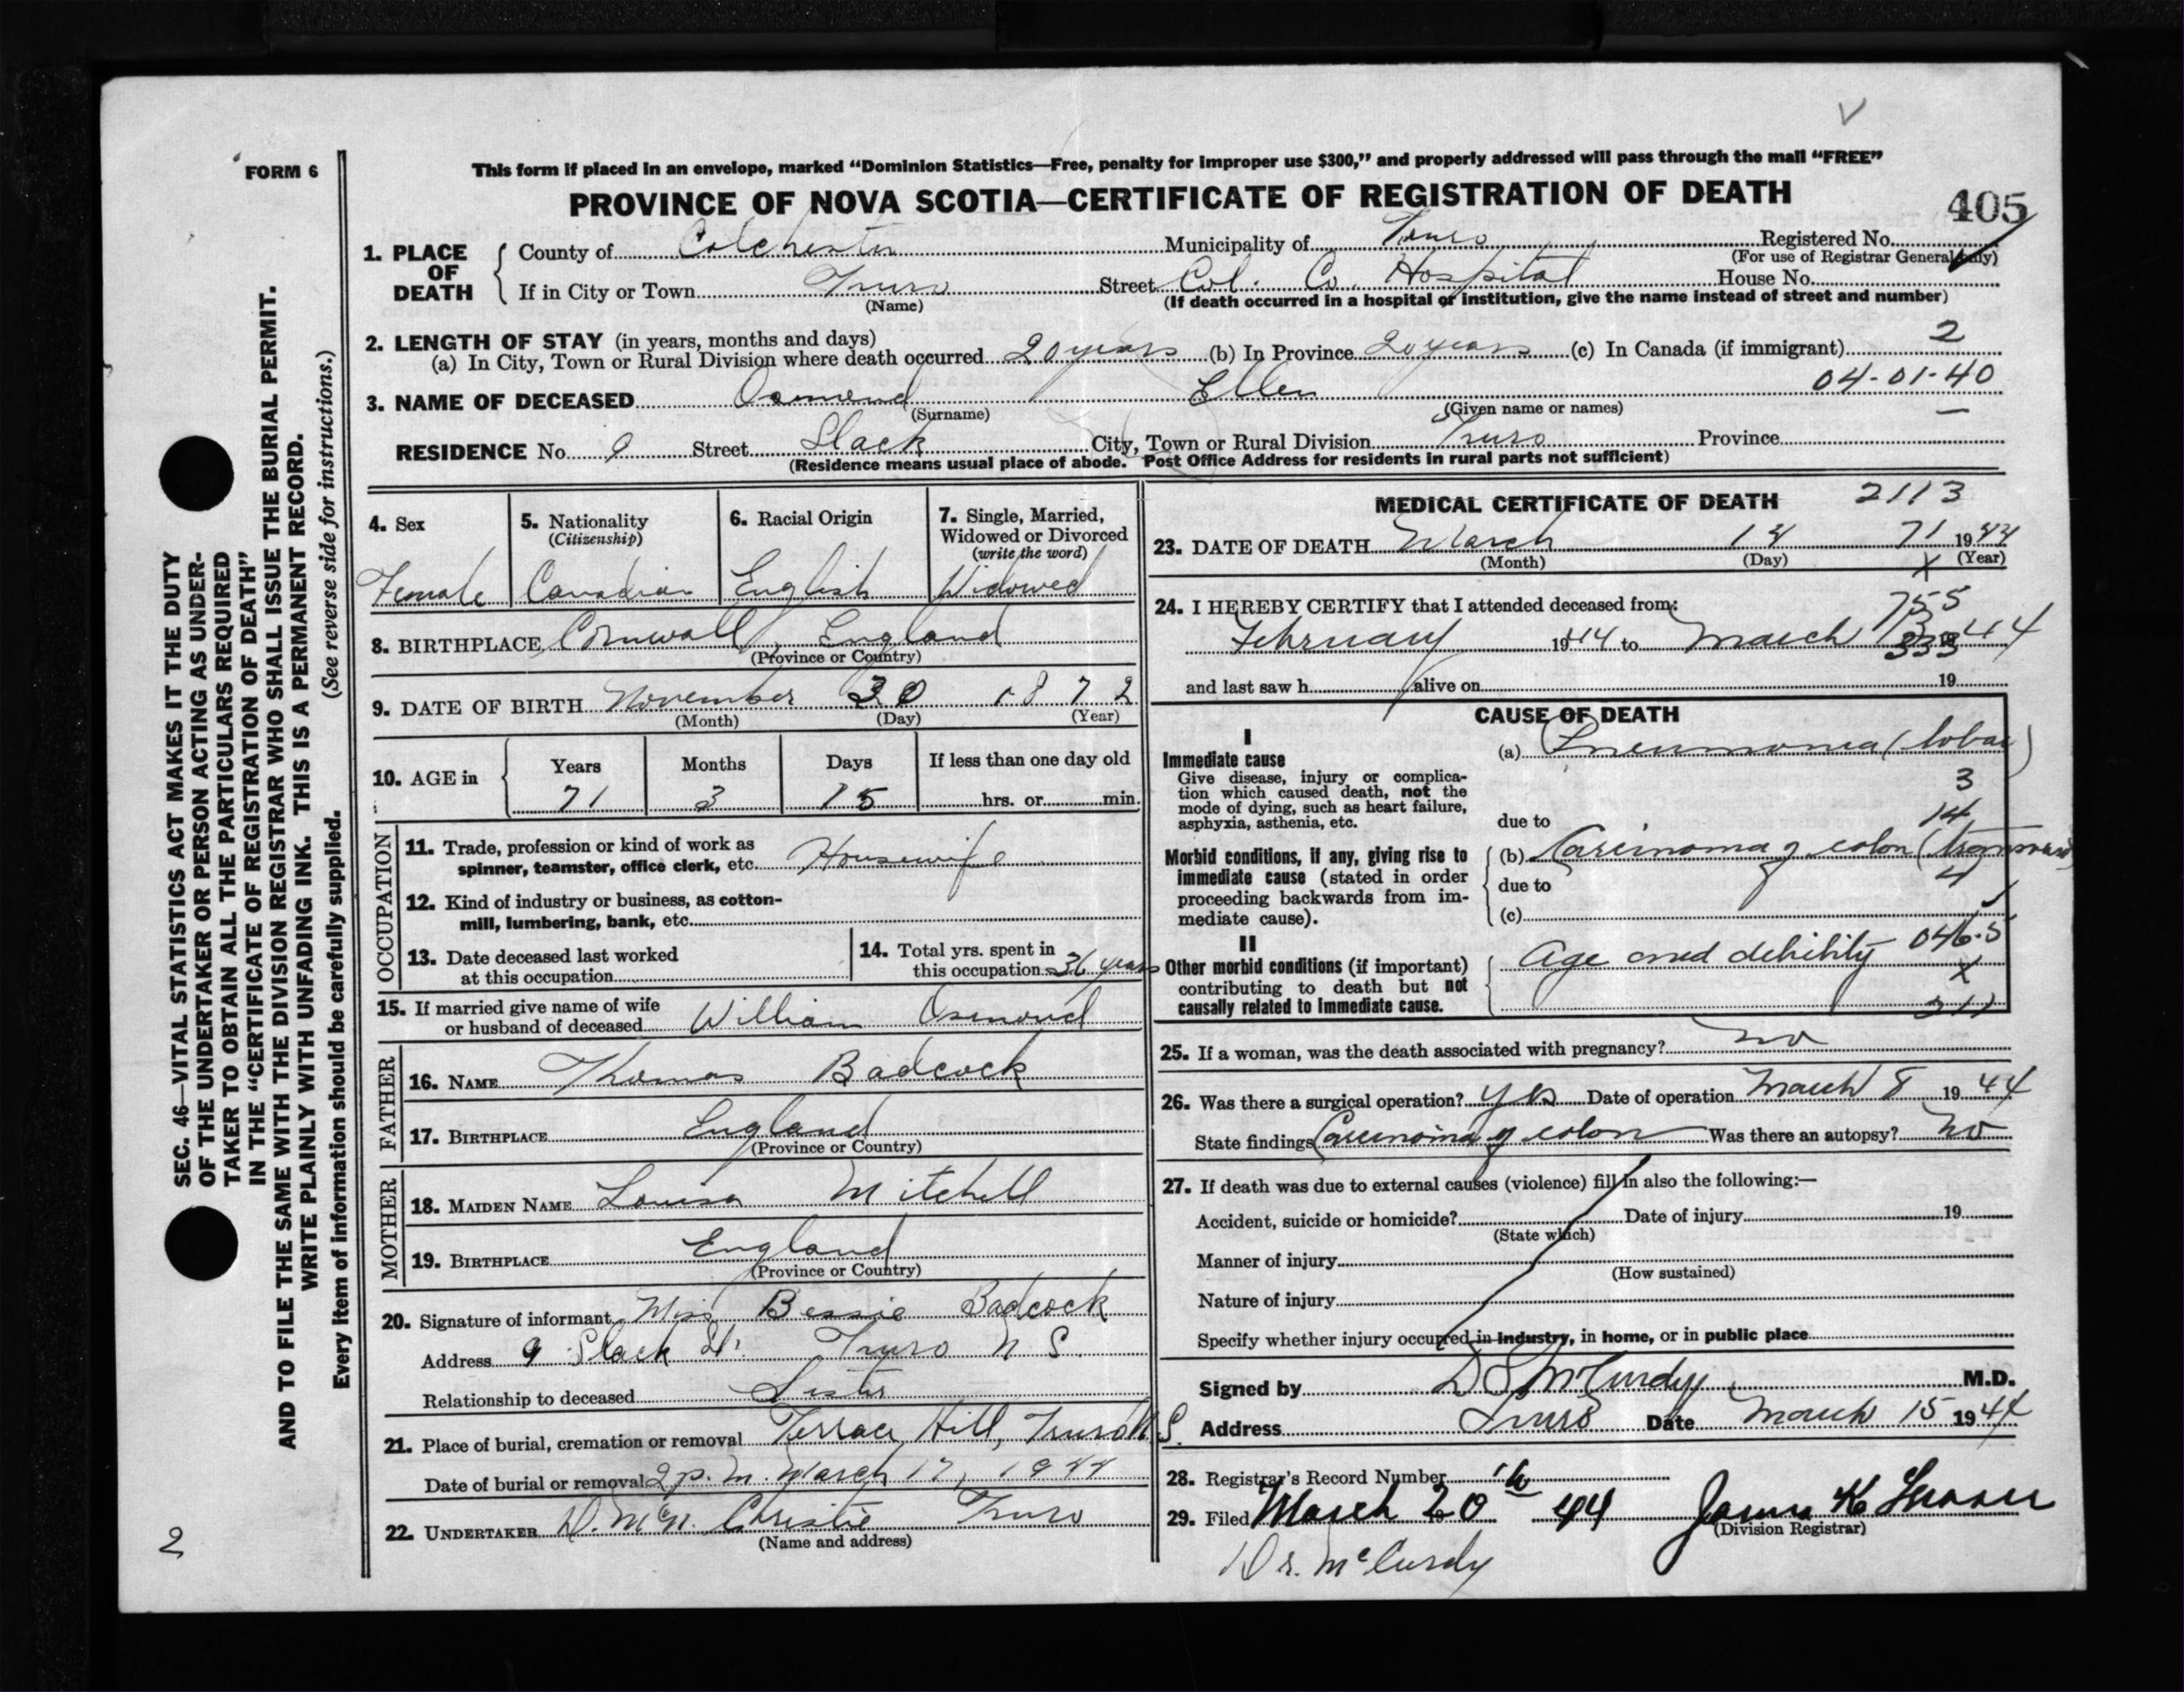 FORM 6
This form if placed in an envelope, marked “Dominion Statistics—Free, penalty for improper use $300,” and properly addressed will pass through the mail “FREE”
PROVINCE OF NOVA SCOTIA—CERTIFICATE OF REGISTRATION OF DEATH
405
1. PLACE OF DEATH
County of Colchester Municipality of Truro Registered No.
(For use of Registrar General only)
If in City or Town Truro Street Col. Co. Hospital House No.
(Name) (If death occurred in a hospital or institution, give the name instead of street and number)
2. LENGTH OF STAY (in years, months and days) 2
(a) In City, Town or Rural Division where death occurred 20 years (b) In Province 20 years (c) In Canada (if immigrant)
04-01-40
3. NAME OF DECEASED Osmond Ellen
(Surname) (Given name or names)
RESIDENCE No. 9 Street Slack City, Town or Rural Division Truro Province —
(Residence means usual place of abode. Post Office Address for residents in rural parts not sufficient)
4. Sex 5. Nationality 6. Racial Origin 7. Single, Married,
(Citizenship) Widowed or Divorced
(write the word)
Female Canadian English Widowed
8. BIRTHPLACE Cornwall, England
(Province or Country)
9. DATE OF BIRTH November 30 1872
(Month) (Day) (Year)
10. AGE in Years Months Days If less than one day old
71 3 15 hrs. or min.
OCCUPATION
11. Trade, profession or kind of work as
spinner, teamster, office clerk, etc. Housewife
12. Kind of industry or business, as cotton-
mill, lumbering, bank, etc.
13. Date deceased last worked
at this occupation
14. Total yrs. spent in
this occupation 36 years
15. If married give name of wife
or husband of deceased William Osmond
FATHER
16. NAME Thomas Badcock
17. BIRTHPLACE England
(Province or Country)
MOTHER
18. MAIDEN NAME Louisa Mitchell
19. BIRTHPLACE England
(Province or Country)
20. Signature of informant Miss Bessie Badcock
Address 9 Slack St. Truro N S.
Relationship to deceased Sister
21. Place of burial, cremation or removal Terrace Hill, Truro N.S.
Date of burial or removal 2 p.m. March 17, 1944
22. UNDERTAKER D. McN. Christie Truro
(Name and address)
MEDICAL CERTIFICATE OF DEATH 2113
23. DATE OF DEATH March 14 71 1944
(Month) (Day) (Year)
X
24. I HEREBY CERTIFY that I attended deceased from: 755
February 1944 to March 44
333
and last saw h alive on 19
CAUSE OF DEATH
I
Immediate cause
Give disease, injury or complica-
tion which caused death, not the
mode of dying, such as heart failure,
asphyxia, asthenia, etc.
(a) Pneumonia (lobar)
3
14
due to
Morbid conditions, if any, giving rise to
immediate cause (stated in order
proceeding backwards from im-
mediate cause).
(b) Carcinoma of colon (transverse)
due to 4
(c)
II
Other morbid conditions (if important)
contributing to death but not
causally related to immediate cause.
Age and debility 046.5
X
25. If a woman, was the death associated with pregnancy? no
26. Was there a surgical operation? yes Date of operation March 8 1944
State findings Carcinoma of colon Was there an autopsy? No
27. If death was due to external causes (violence) fill in also the following:—
Accident, suicide or homicide? Date of injury 19
(State which)
Manner of injury
(How sustained)
Nature of injury
Specify whether injury occurred in industry, in home, or in public place
Signed by D S McCurdy M.D.
Address Truro Date March 15 1944
28. Registrar's Record Number
29. Filed March 20th 44 James K
(Division Registrar)
Dr. McCurdy
SEC. 46—VITAL STATISTICS ACT MAKES IT THE DUTY
OF THE UNDERTAKER OR PERSON ACTING AS UNDER-
TAKER TO OBTAIN ALL THE PARTICULARS REQUIRED
IN THE “CERTIFICATE OF REGISTRATION OF DEATH”
AND TO FILE THE SAME WITH THE DIVISION REGISTRAR WHO SHALL ISSUE THE BURIAL PERMIT.
WRITE PLAINLY WITH UNFADING INK. THIS IS A PERMANENT RECORD.
Every item of information should be carefully supplied. (See reverse side for instructions.)
2